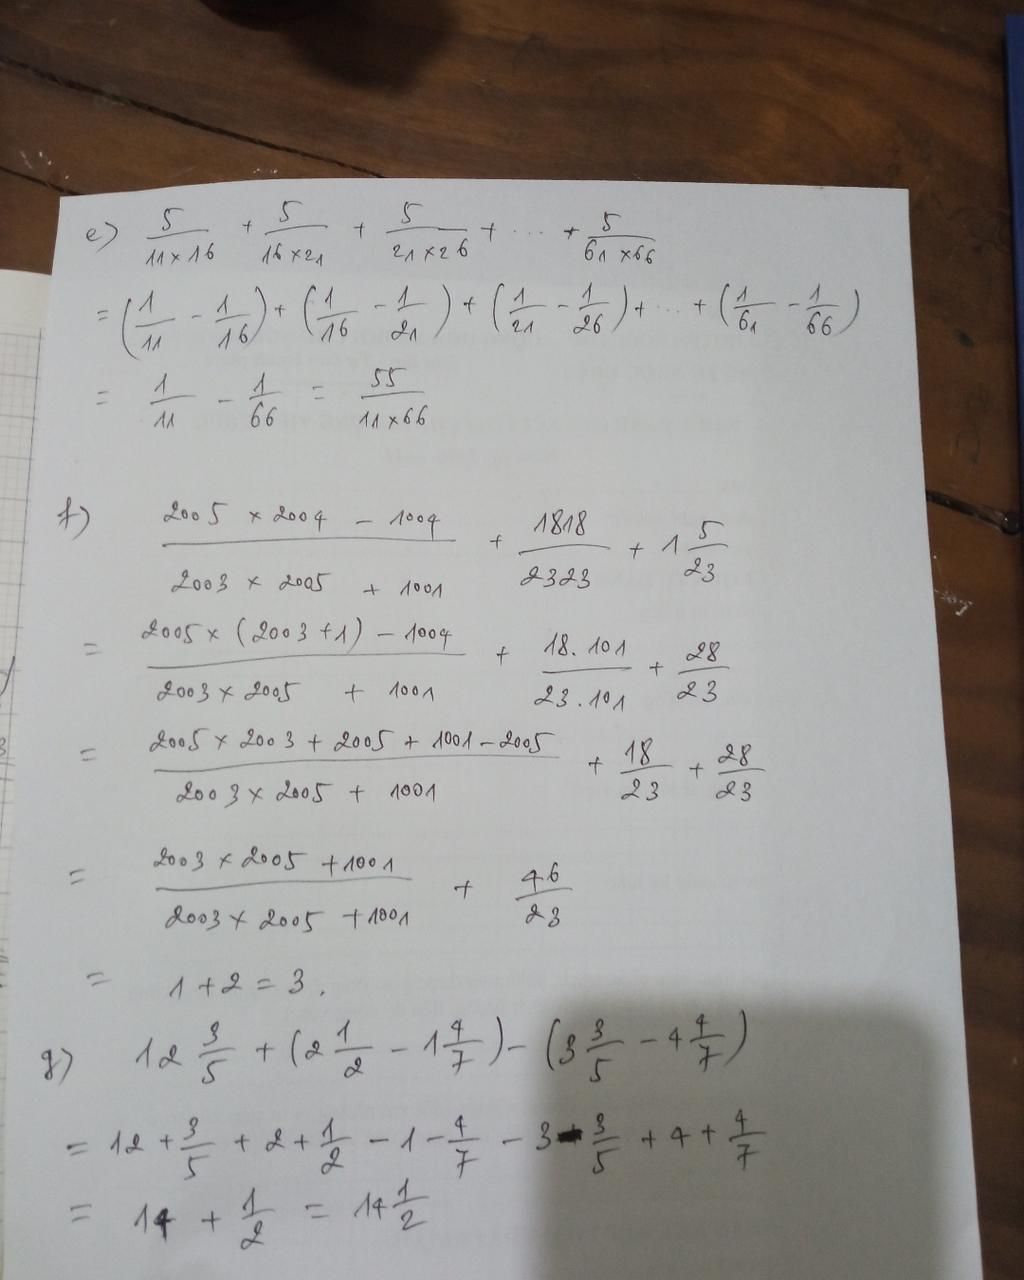 e) 5/(11×16) + 5/(16×21) + 5/(21×26) + ... + 5/(61×66)
= (1/11 - 1/16) + (1/16 - 1/21) + (1/21 - 1/26) + ... + (1/61 - 1/66)
= 1/11 - 1/66 = 55/(11×66)
f) (2005 × 2004 - 1004)/(2003 × 2005 + 1001) + 1818/2323 + 1 5/23
= (2005 × (2003 + 1) - 1004)/(2003 × 2005 + 1001) + (18.101)/(23.101) + 28/23
= (2005 × 2003 + 2005 + 1001 - 2005)/(2003 × 2005 + 1001) + 18/23 + 28/23
= (2003 × 2005 + 1001)/(2003 × 2005 + 1001) + 46/23
= 1 + 2 = 3.
g) 12 3/5 + (2 1/2 - 1 4/7) - (3 3/5 - 4 4/7)
= 12 + 3/5 + 2 + 1/2 - 1 - 4/7 - 3 - 3/5 + 4 + 4/7
= 14 + 1/2 = 14 1/2